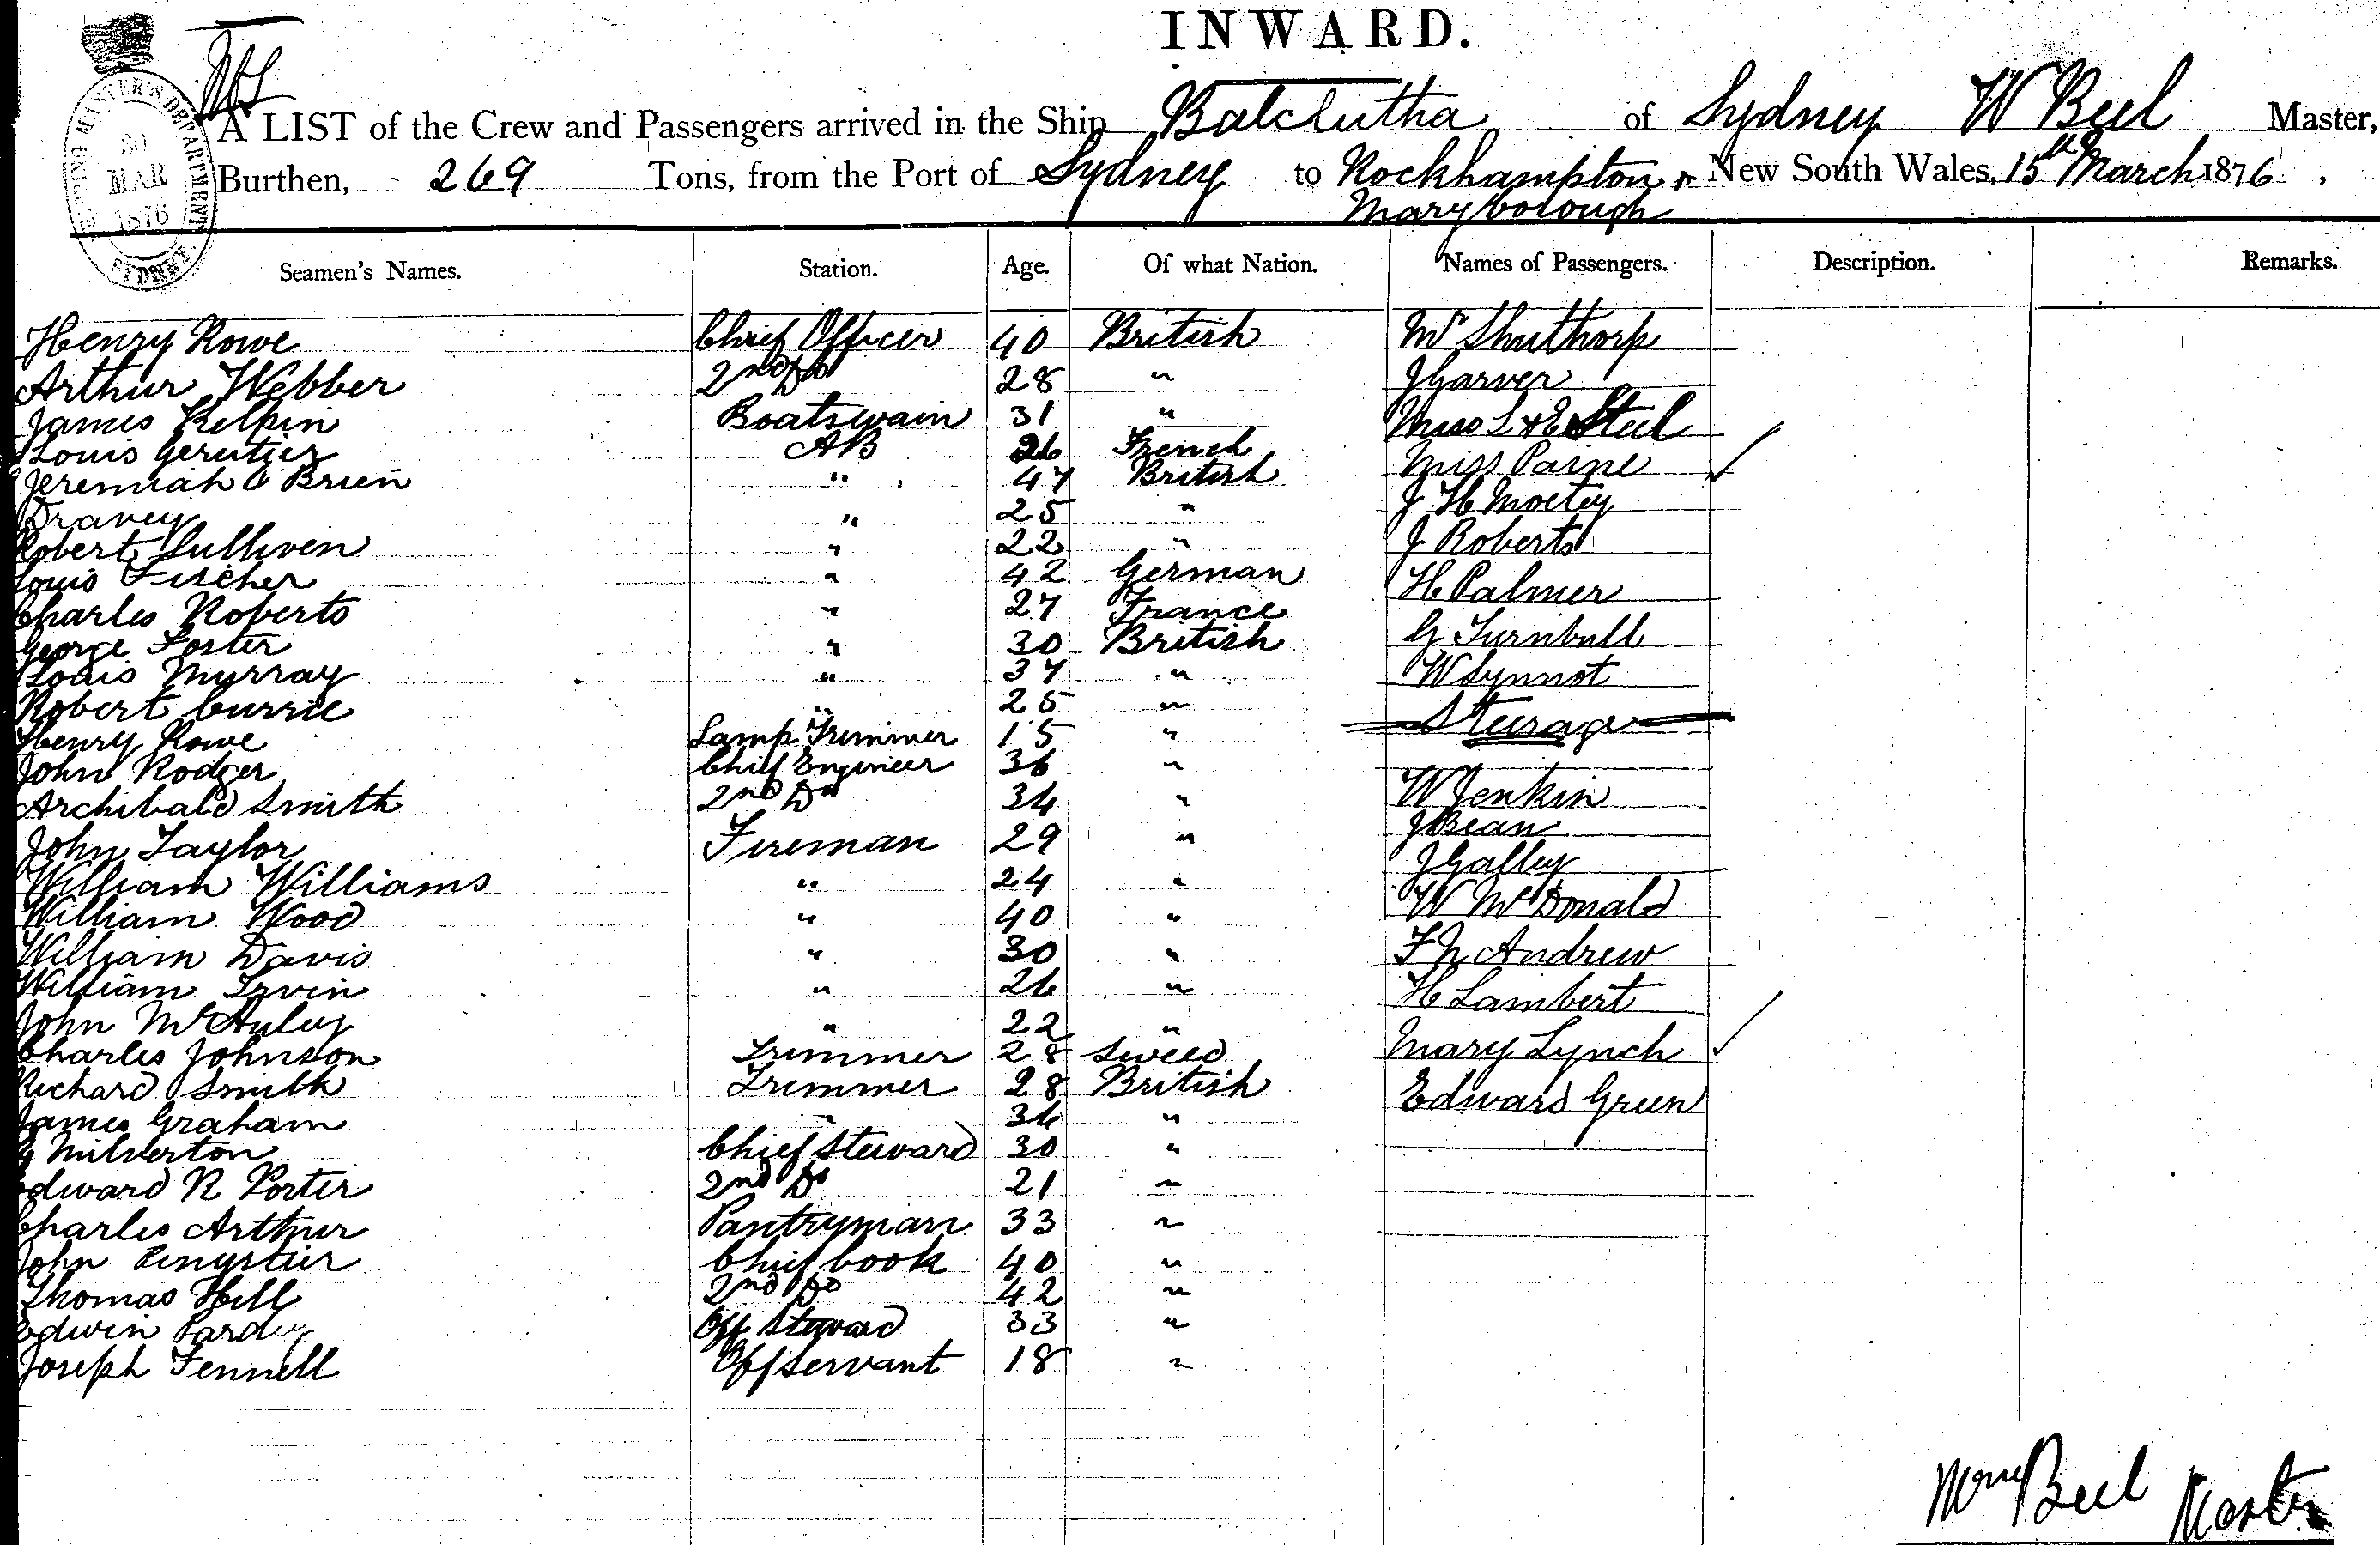 INWARD.
A LIST of the Crew and Passengers arrived in the Ship Balclutha of Sydney W Beel Master,
Burthen, 269 Tons, from the Port of Sydney to Rockhampton & New South Wales, 15th March 1876.
Maryborough
SHIPPING MASTER'S DEPARTMENT SYDNEY
30 MAR 1876
Seamen's Names. Station. Age. Of what Nation. Names of Passengers. Description. Remarks.
Henry Rowe Chief Officer 40 British Mr Shuthorp
Arthur Webber 2nd Do 28 " J Garver
James Kelpin Boatswain 31 " Miss L & E Steel
Louis AB 26 French Miss Paine
Jeremiah O Brien " 47 British J H
Dravey " 25 " J Roberts
Robert Sulliven " 22 " H Palmer
Louis Fischer " 42 German G Turnbull
Charles Roberts " 27 France W Synnot
George Foster " 30 British Steerage
Louis Murray " 37 " W Jenkin
Robert Currie " 25 " J Bean
Henry Rowe Lamp Trimmer 15 " J Galley
John Rodger Chief Engineer 36 " W McDonald
Archibald Smith 2nd Do 34 " F N Andrew
John Taylor Fireman 29 " H Lambert
William Williams " 24 " Mary Lynch
William Wood " 40 " Edward Green
William Davis " 30 "
William Irvin " 26 "
John McAuley " 22 "
Charles Johnson Trimmer 28 Sweed
Richard Smith Trimmer 28 British
James Graham " 34 "
Milverton Chief Steward 30 "
Edward R Porter 2nd Do 21 "
Charles Arthur Pantryman 33 "
John Chief Cook 40 "
Thomas Hill 2nd Do 42 "
Edwin Pardey Off Steward 33 "
Joseph Fennell Off Servant 18 "
Beel Master